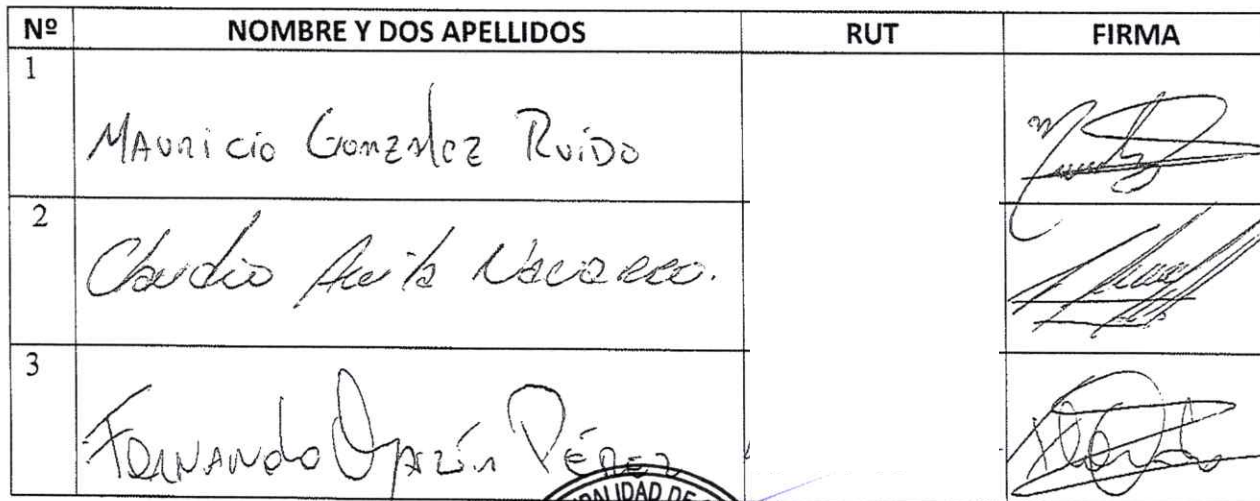 Nº NOMBRE Y DOS APELLIDOS RUT FIRMA
1
Mauricio Gonzalez Ruido
2
Claudio Avila Navarro.
3
Fernando Oyarzún Pérez
PALIDAD DE